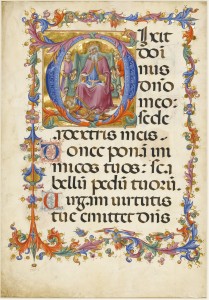 Dixit
domi
nus
dño
meo:
sede
a dextris meis.
Donec ponã ini
micos tuos: sca
bellũ pedũ tuorũ.
Uirgam uirtutis
tue emittet dñs